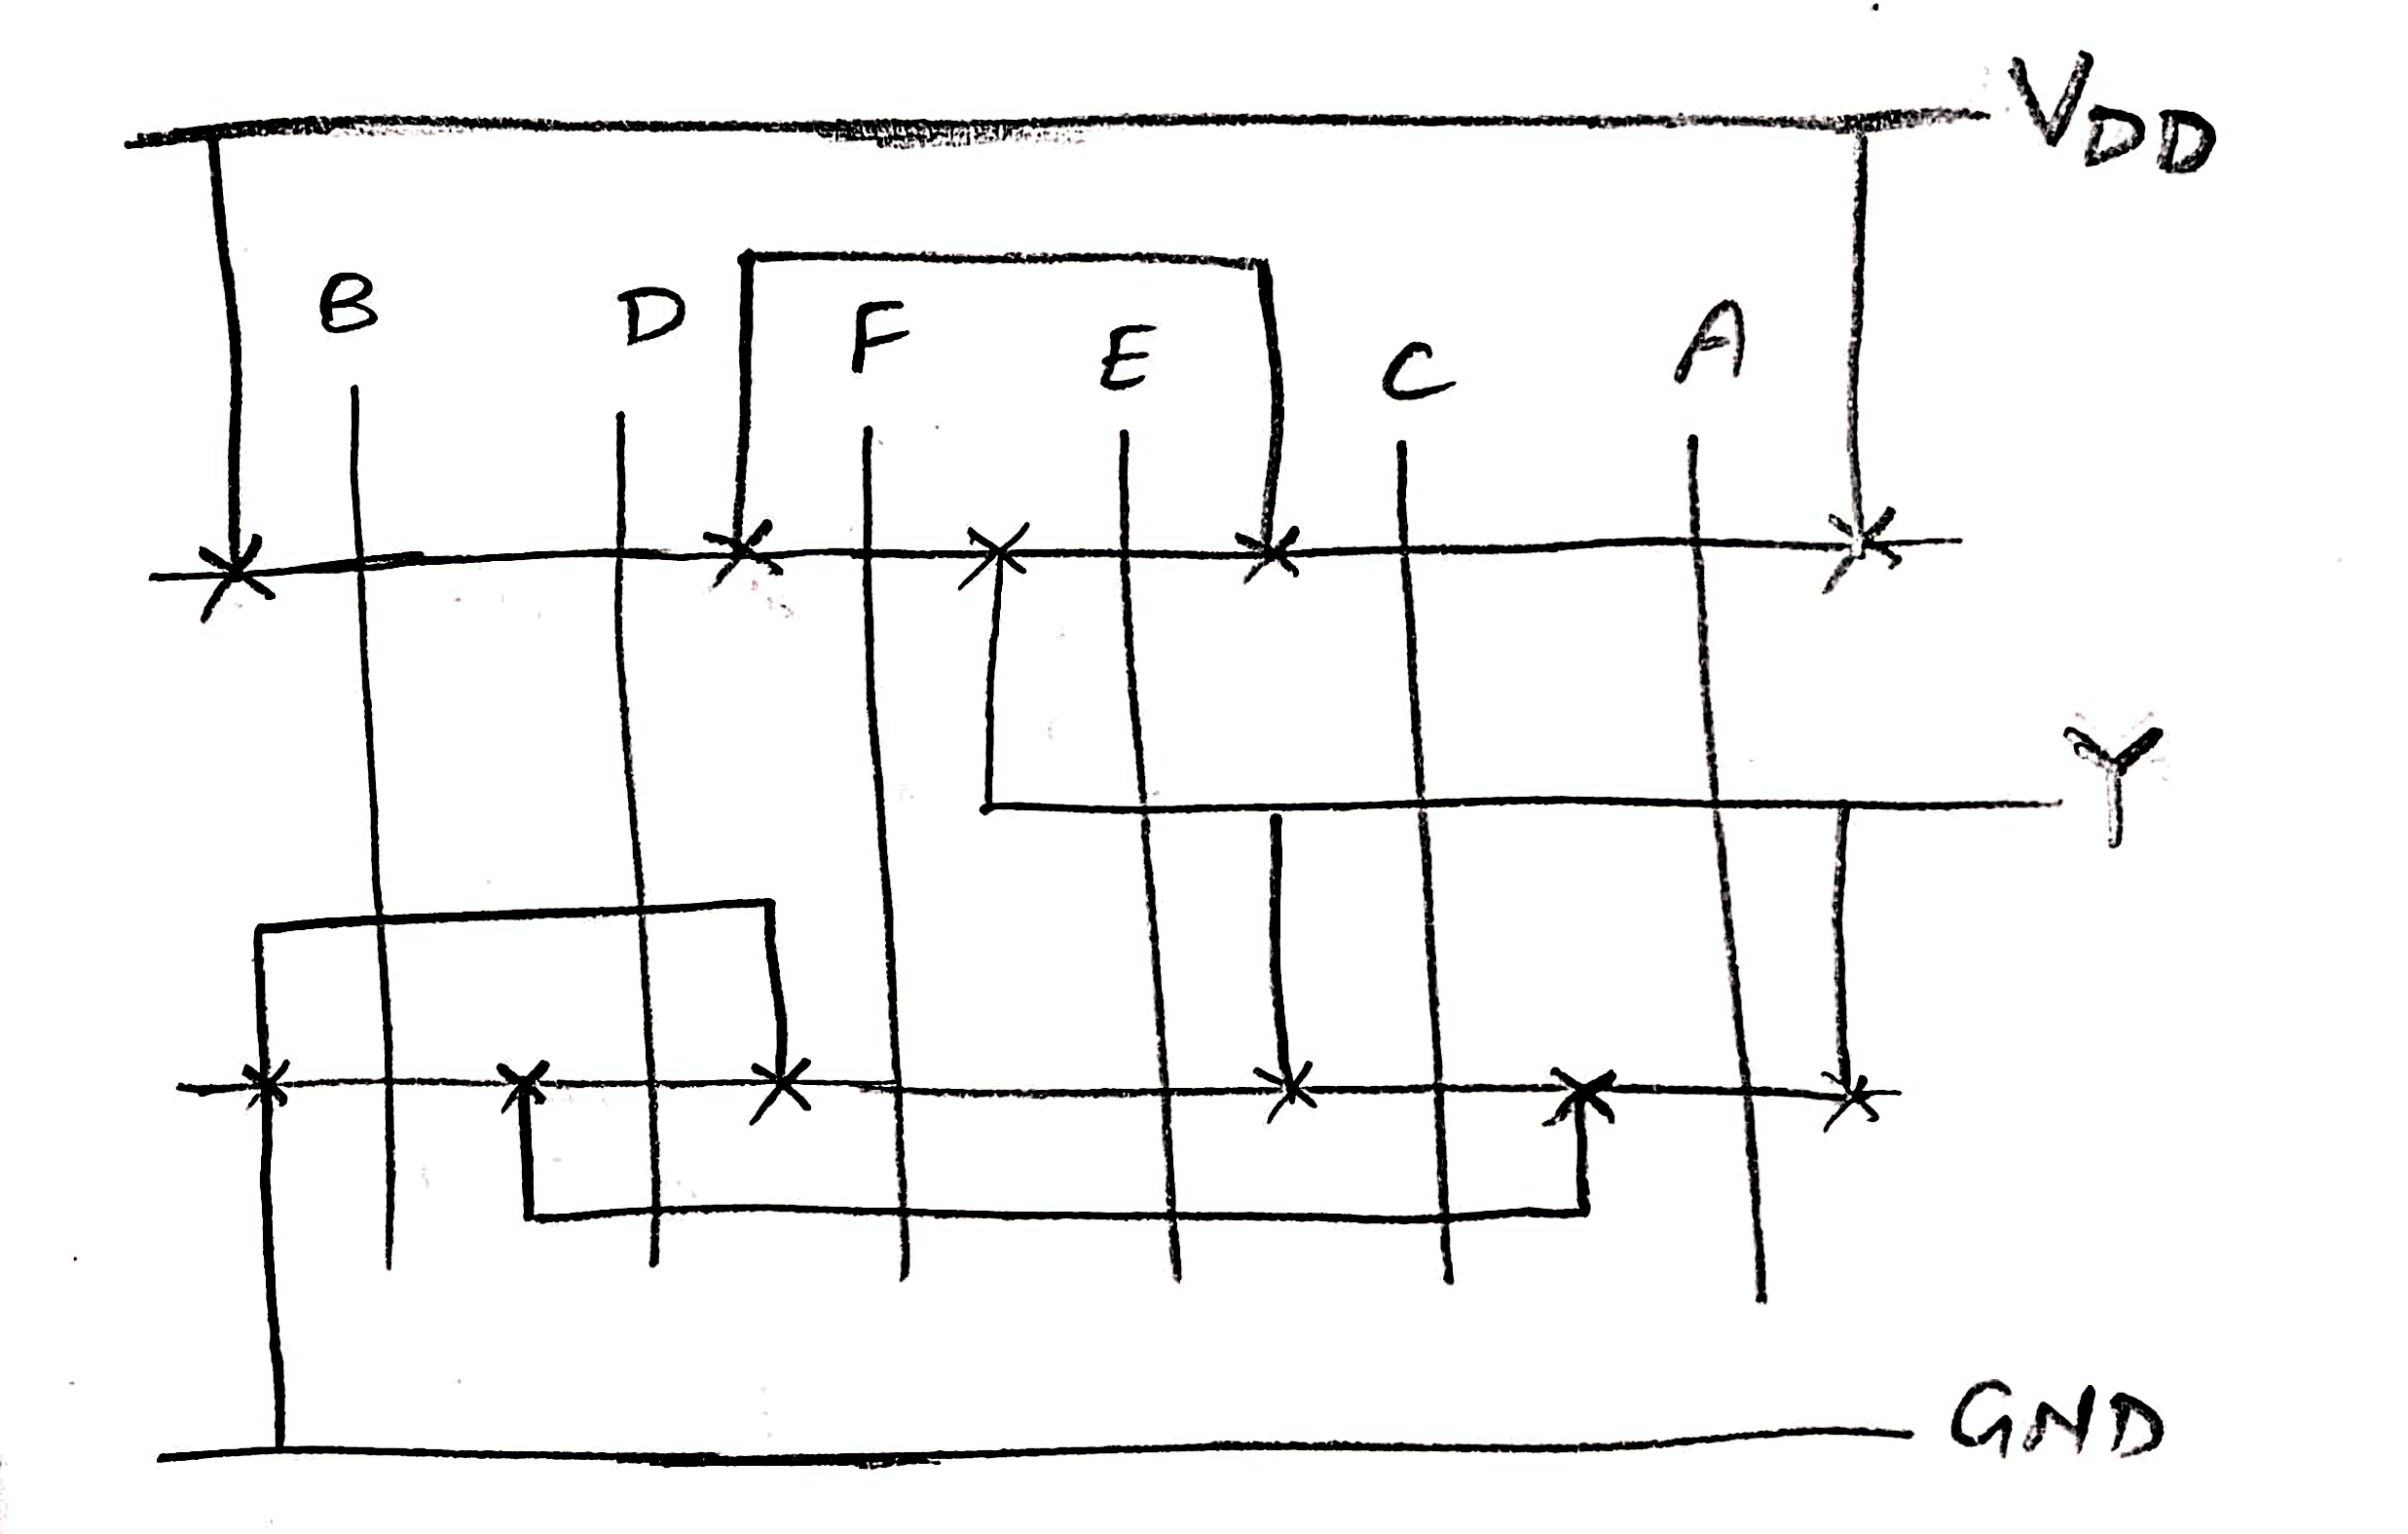 VDD
B D F E C A
Y
GND